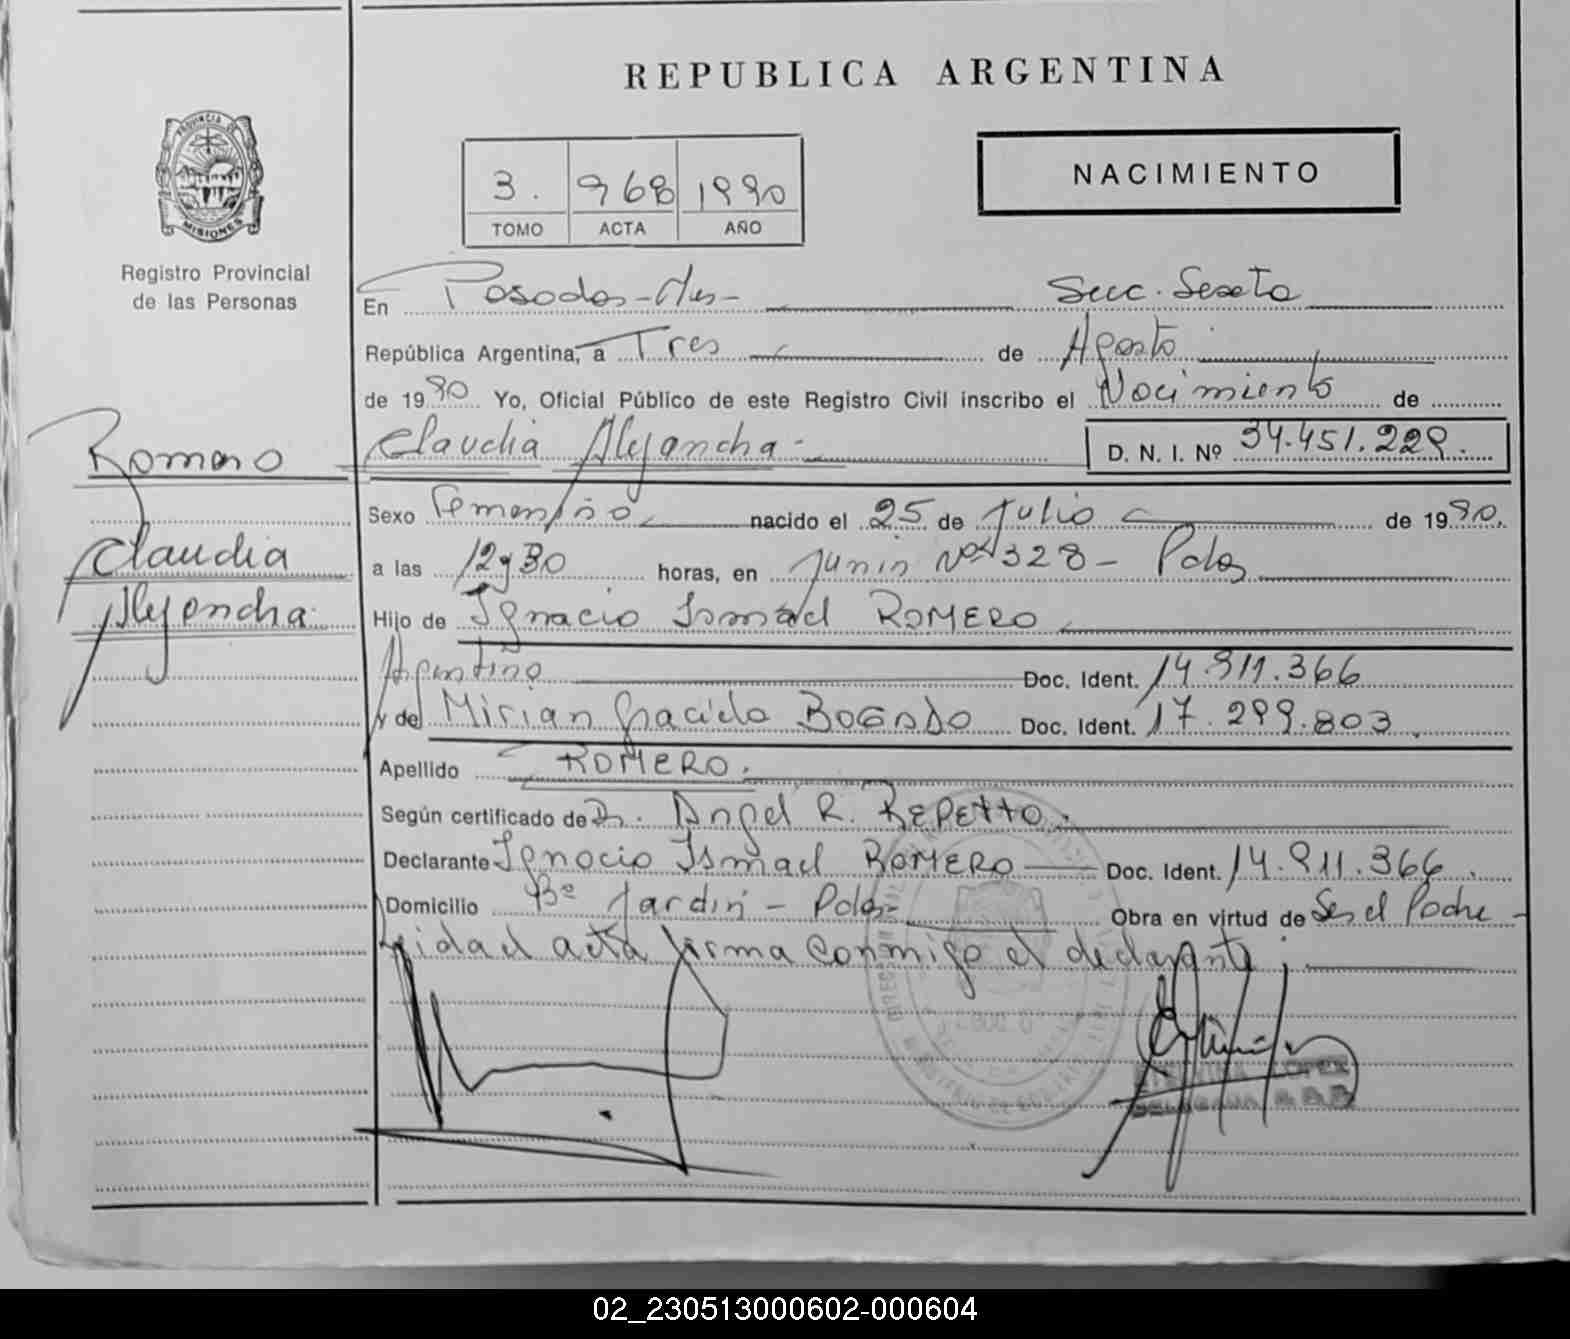 REPUBLICA ARGENTINA
PROVINCIA DE MISIONES
Registro Provincial
de las Personas
3. 968 1990
TOMO ACTA AÑO
NACIMIENTO
En Posadas-Mnes- Secc. Sexta
República Argentina, a Tres de Agosto
de 1990 Yo, Oficial Público de este Registro Civil inscribo el Nacimiento de
Claudia Alejandra.- D. N. I. Nº 34.451.229.
Romero
Claudia
Alejandra.
Sexo Femenino nacido el 25 de Julio de 1990.
a las 12y30 horas, en Junin Nº 328- Pdas
Hijo de Ignacio Ismael ROMERO
Argentino Doc. Ident. 14.911.366
y de Mirian Graciela BOGADO Doc. Ident. 17.299.803.
Apellido ROMERO.
Según certificado de Dr. Angel R. REPETTO.
Declarante Ignacio Ismael ROMERO Doc. Ident. 14.911.366.
Domicilio Bº Jardin - Pdas- Obra en virtud de Ser el Padre -
leida el acta firma conmigo el declarante;
LOPEZ
02_230513000602-000604